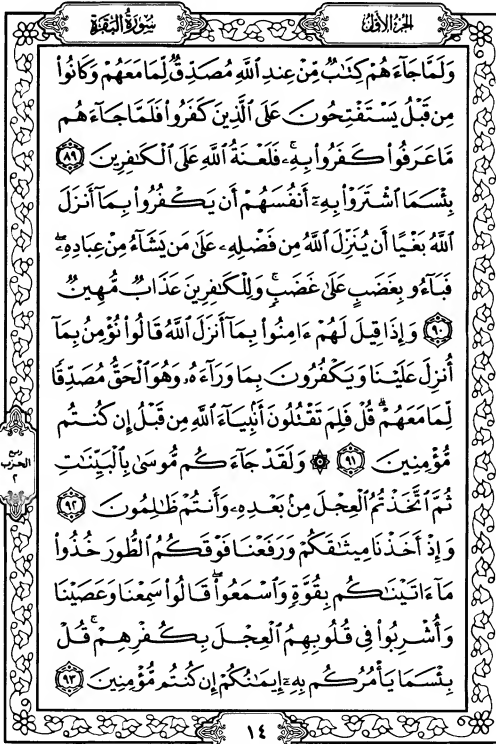 سُورَةُ البَقَرَة
الجزء الأوّل
وَلَمَّا جَآءَهُمْ كِتَٰبٌ مِّنْ عِندِ ٱللَّهِ مُصَدِّقٌ لِّمَا مَعَهُمْ وَكَانُوا۟
مِن قَبْلُ يَسْتَفْتِحُونَ عَلَى ٱلَّذِينَ كَفَرُوا۟ فَلَمَّا جَآءَهُم
مَّا عَرَفُوا۟ كَفَرُوا۟ بِهِۦ ۚ فَلَعْنَةُ ٱللَّهِ عَلَى ٱلْكَٰفِرِينَ ٨٩
بِئْسَمَا ٱشْتَرَوْا۟ بِهِۦٓ أَنفُسَهُمْ أَن يَكْفُرُوا۟ بِمَآ أَنزَلَ
ٱللَّهُ بَغْيًا أَن يُنَزِّلَ ٱللَّهُ مِن فَضْلِهِۦ عَلَىٰ مَن يَشَآءُ مِنْ عِبَادِهِۦ ۖ
فَبَآءُو بِغَضَبٍ عَلَىٰ غَضَبٍ ۚ وَلِلْكَٰفِرِينَ عَذَابٌ مُّهِينٌ
٩٠ وَإِذَا قِيلَ لَهُمْ ءَامِنُوا۟ بِمَآ أَنزَلَ ٱللَّهُ قَالُوا۟ نُؤْمِنُ بِمَآ
أُنزِلَ عَلَيْنَا وَيَكْفُرُونَ بِمَا وَرَآءَهُۥ وَهُوَ ٱلْحَقُّ مُصَدِّقًا
لِّمَا مَعَهُمْ ۗ قُلْ فَلِمَ تَقْتُلُونَ أَنۢبِيَآءَ ٱللَّهِ مِن قَبْلُ إِن كُنتُم
مُّؤْمِنِينَ ٩١ ۞ وَلَقَدْ جَآءَكُم مُّوسَىٰ بِٱلْبَيِّنَٰتِ
ثُمَّ ٱتَّخَذْتُمُ ٱلْعِجْلَ مِنۢ بَعْدِهِۦ وَأَنتُمْ ظَٰلِمُونَ ٩٢
وَإِذْ أَخَذْنَا مِيثَٰقَكُمْ وَرَفَعْنَا فَوْقَكُمُ ٱلطُّورَ خُذُوا۟
مَآ ءَاتَيْنَٰكُم بِقُوَّةٍ وَٱسْمَعُوا۟ ۖ قَالُوا۟ سَمِعْنَا وَعَصَيْنَا
وَأُشْرِبُوا۟ فِى قُلُوبِهِمُ ٱلْعِجْلَ بِكُفْرِهِمْ ۚ قُلْ
بِئْسَمَا يَأْمُرُكُم بِهِۦٓ إِيمَٰنُكُمْ إِن كُنتُم مُّؤْمِنِينَ ٩٣
ربع
الحزب
٢
١٤